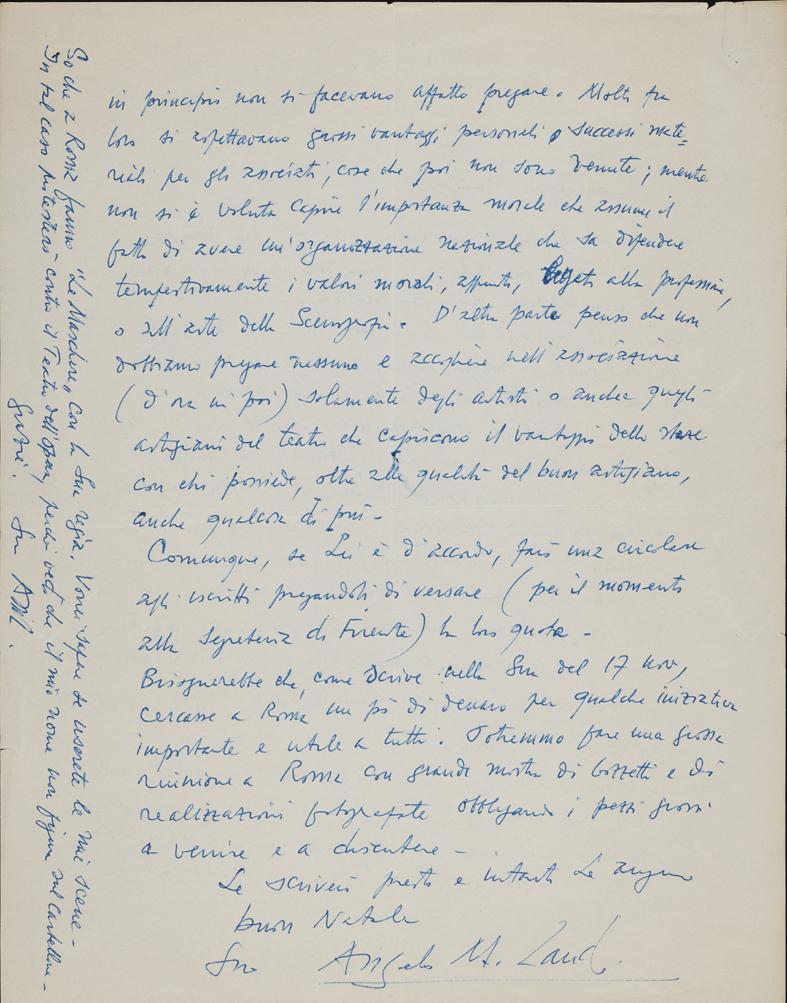 in principio non si facevano affatto pregare. Molti fra
loro si aspettavano grossi vantaggi personali e successi mate-
riali per gli associati, cose che poi non sono venute; mentre
non si è voluta capire l'importanza morale che assume il
fatto di avere un'organizzazione nazionale che sa difendere
tempestivamente i valori morali, appunto, legati alla professione,
o all'arte della Scenografia. D'altra parte penso che non
dobbiamo pregare nessuno e accogliere nell'associazione
(d'ora in poi) solamente degli artisti o anche quegli
artigiani del teatro che capiscono il vantaggio dello stare
con chi possiede, oltre alle qualità del buon artigiano,
anche qualcosa di più -
Comunque, se Lei è d'accordo, farò una circolare
agli iscritti pregandoli di versare (per il momento
alla Segreteria di Firenze) la loro quota -
Bisognerebbe che, come scrive nella Sua del 17 nov,
cercasse a Roma un pò di denaro per qualche iniziativa
importante e utile a tutti. Potremmo fare una grossa
riunione a Roma con grande mostra di bozzetti e di
realizzazioni fotografate obbligando i pezzi grossi
a venire e a discutere -
Le scriverò presto e intanto Le auguro
buon Natale
Suo Angelo M. Landi.
So che a Roma fanno "Le Maschere" con la Sua regia. Vorrei sapere se userete le mie scene -
In tal caso protesterò contro il Teatro dell'Opera, perchè vedo che il mio nome non figura sul Cartellone -